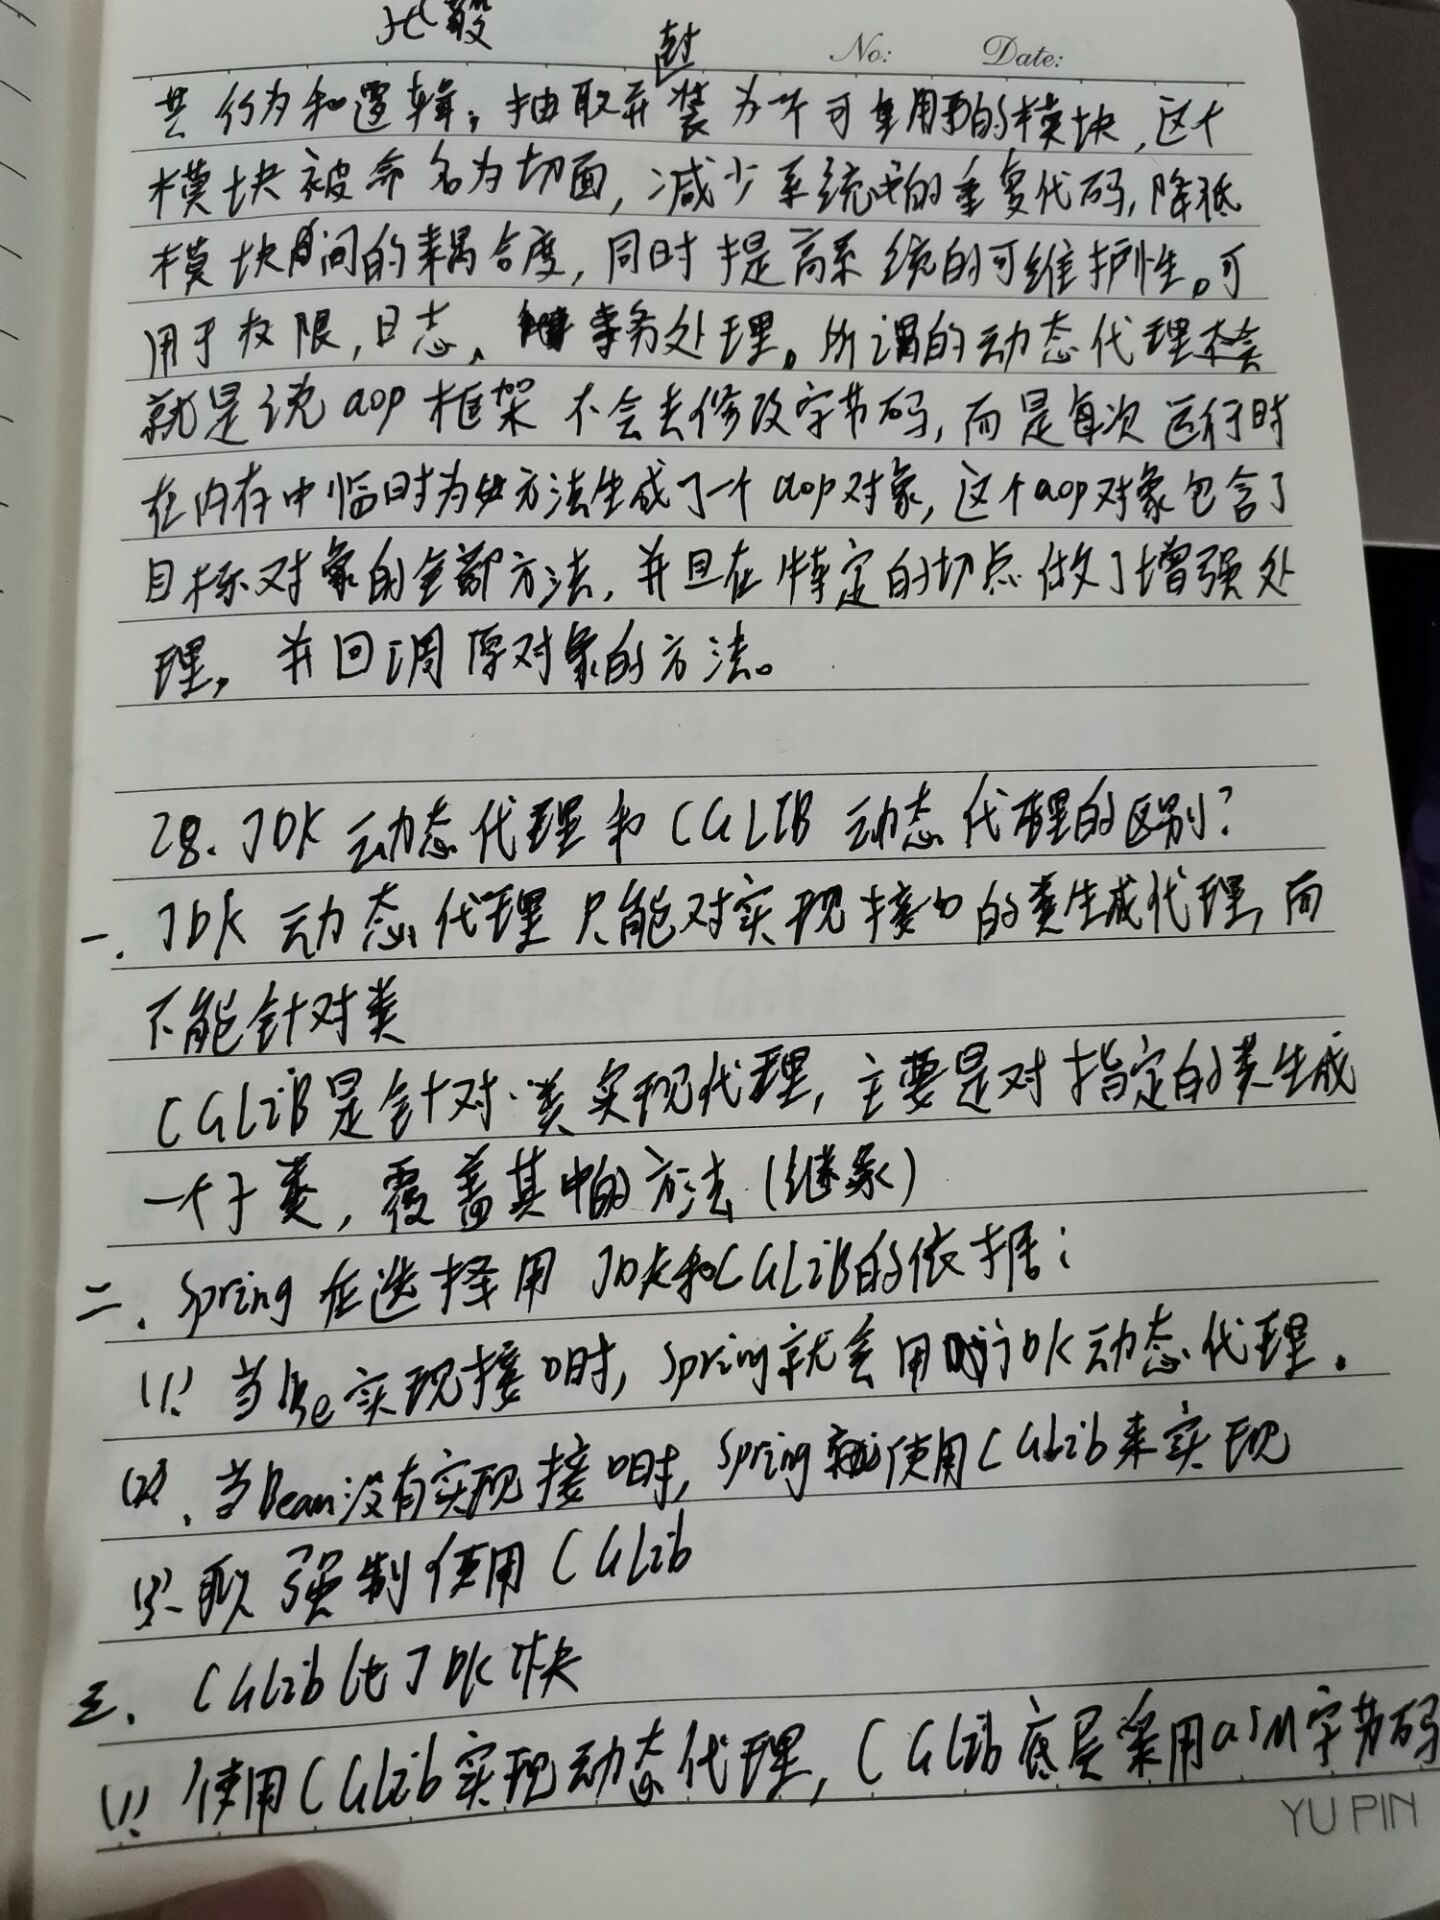 No: Date:
共行为和逻辑，抽取并封装为一个可重用的模块，这个
模块被命名为切面，减少系统中的重复代码，降低
模块间的耦合度，同时提高系统的可维护性。可
用于权限，日志，事务处理。所谓的动态代理
就是说aop框架不会去修改字节码，而是每次运行时
在内存中临时为方法生成了一个aop对象，这个aop对象包含了
目标对象的全部方法，并且在特定的切点做了增强处
理，并回调原对象的方法。
28. JDK动态代理和CGLIB动态代理的区别？
一、JDK动态代理只能对实现接口的类生成代理，而
不能针对类
CGLiB是针对类实现代理，主要是对指定的类生成
一个子类，覆盖其中的方法（继承）
二、Spring在选择用JDK和CGLiB的依据：
(1) 当实现接口时，Spring就会用JDK动态代理。
(2)、当Bean没有实现接口时，Spring就使用CGLib来实现
(3) 强制使用CGLib
三、CGLib比JDK快
(1) 使用CGLib实现动态代理，CGLib底层采用ASM字节码
YU PIN